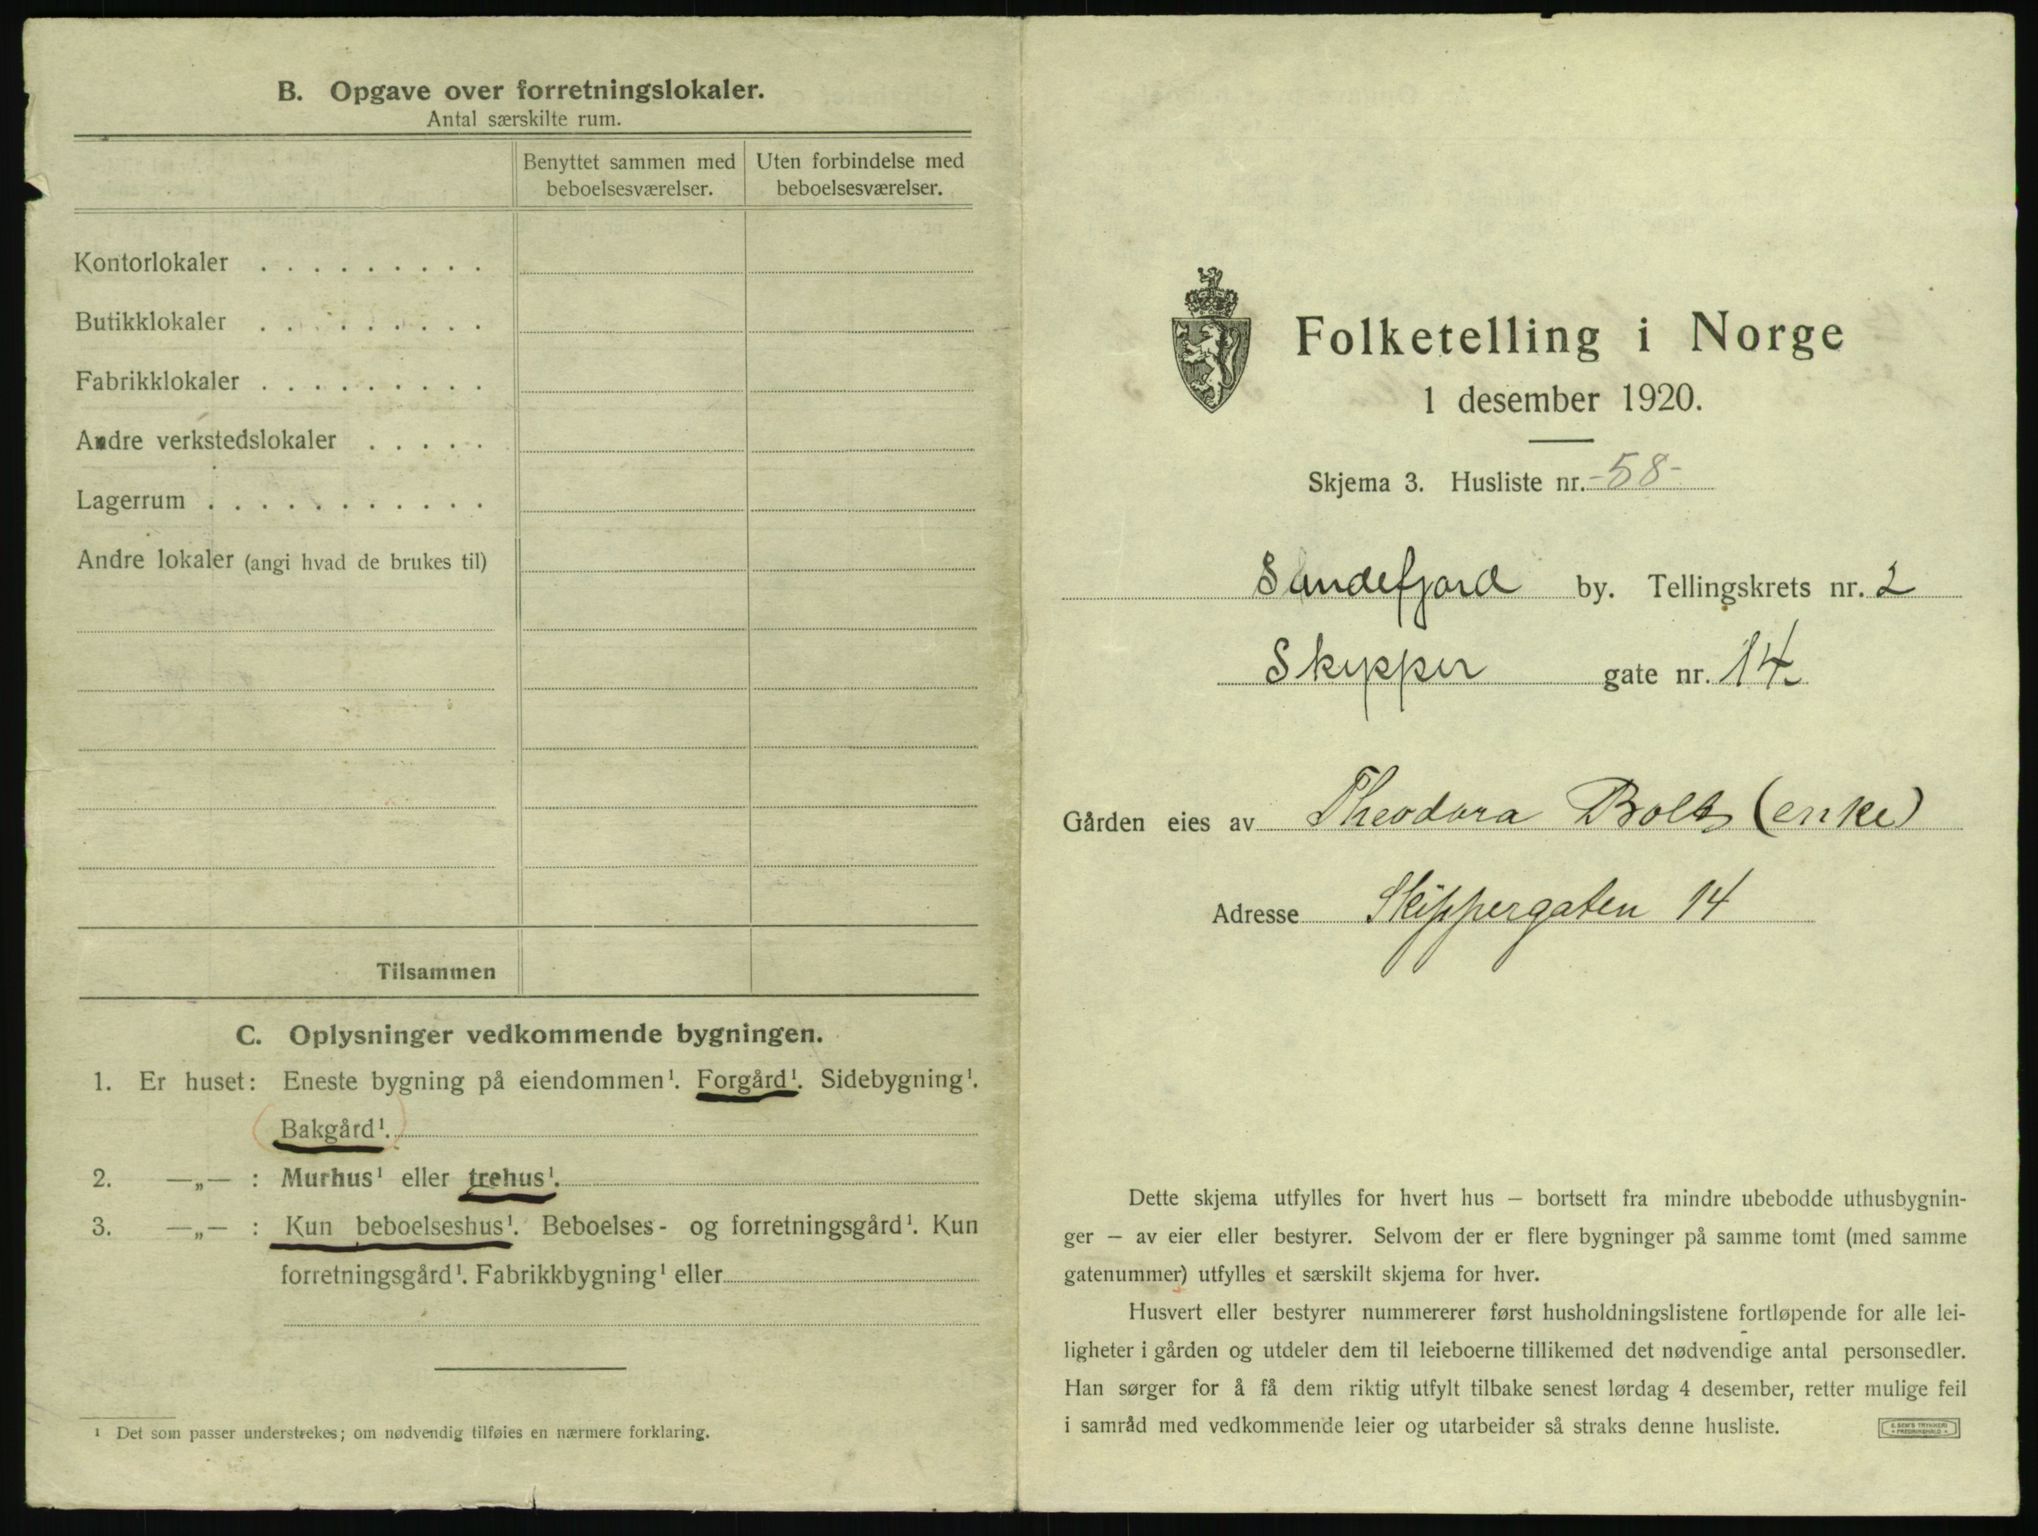 B. Opgave over forretningslokaler.
Antal særskilte rum.
Benyttet sammen med beboelsesværelser.
Uten forbindelse med beboelsesværelser.
Kontorlokaler . . . . . . . . .
Butikklokaler . . . . . . . . .
Fabrikklokaler . . . . . . . . .
Andre verkstedslokaler . . . . .
Lagerrum . . . . . . . . . . .
Andre lokaler (angi hvad de brukes til)
Tilsammen
C. Oplysninger vedkommende bygningen.
1. Er huset: Eneste bygning på eiendommen¹. Forgård¹. Sidebygning¹.
Bakgård¹.
2. —„— : Murhus¹ eller trehus¹.
3. —„— : Kun beboelseshus¹. Beboelses- og forretningsgård¹. Kun
forretningsgård¹. Fabrikkbygning¹ eller
¹ Det som passer understrekes; om nødvendig tilføies en nærmere forklaring.
Folketelling i Norge
1 desember 1920.
Skjema 3. Husliste nr. -58-
Sandefjord by. Tellingskrets nr. 2
Skipper gate nr. 14
Gården eies av Theodora Bolt (enke)
Adresse Skippergaten 14
Dette skjema utfylles for hvert hus – bortsett fra mindre ubebodde uthusbygnin-
ger – av eier eller bestyrer. Selvom der er flere bygninger på samme tomt (med samme
gatenummer) utfylles et særskilt skjema for hver.
Husvert eller bestyrer nummererer først husholdningslistene fortløpende for alle lei-
ligheter i gården og utdeler dem til leieboerne tillikemed det nødvendige antal personsedler.
Han sørger for å få dem riktig utfylt tilbake senest lørdag 4 desember, retter mulige feil
i samråd med vedkommende leier og utarbeider så straks denne husliste.
E. SEM'S TRYKKERI
FREDRIKSHALD